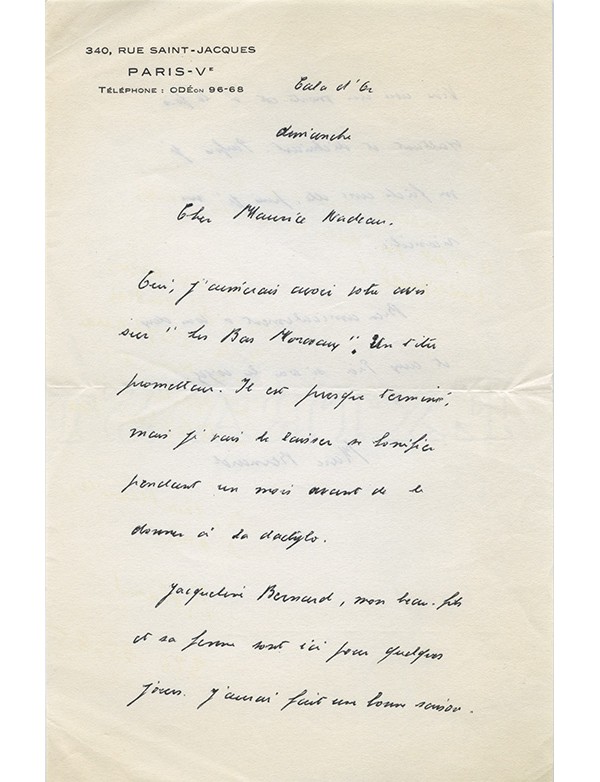 340, RUE SAINT-JACQUES
PARIS-Vᴱ
TÉLÉPHONE : ODÉON 96-68
Cala d'Or
dimanche
Cher Maurice Nadeau.
Oui, j'aimerais avoir votre avis
sur " Les Bas Morceaux ". Un titre
prometteur. Il est presque terminé,
mais je vais le laisser se bonifier
pendant un mois avant de le
donner à la dactylo.
Jacqueline Bernard, mon beau-fils
et sa femme sont ici pour quelques
jours. J'aurai fait une bonne saison.
Marc Bernard